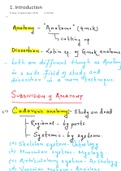 1. Introduction
Anatomy - "Anatome" (greek)
↳ cutting up
Dissection - Latin eq. of Greek anatome
- both are different though as Anatomy is a wide field of study and dissection is a mere technique.
Subdivision of Anatomy
Cadaveric anatomy - Study on dead
- Regional - by parts
- Systemic - by system
(a) Skeleton system -
(b) Muscular system - Myology
(c) Articulatory system -
(d) Vascular system - Angiology